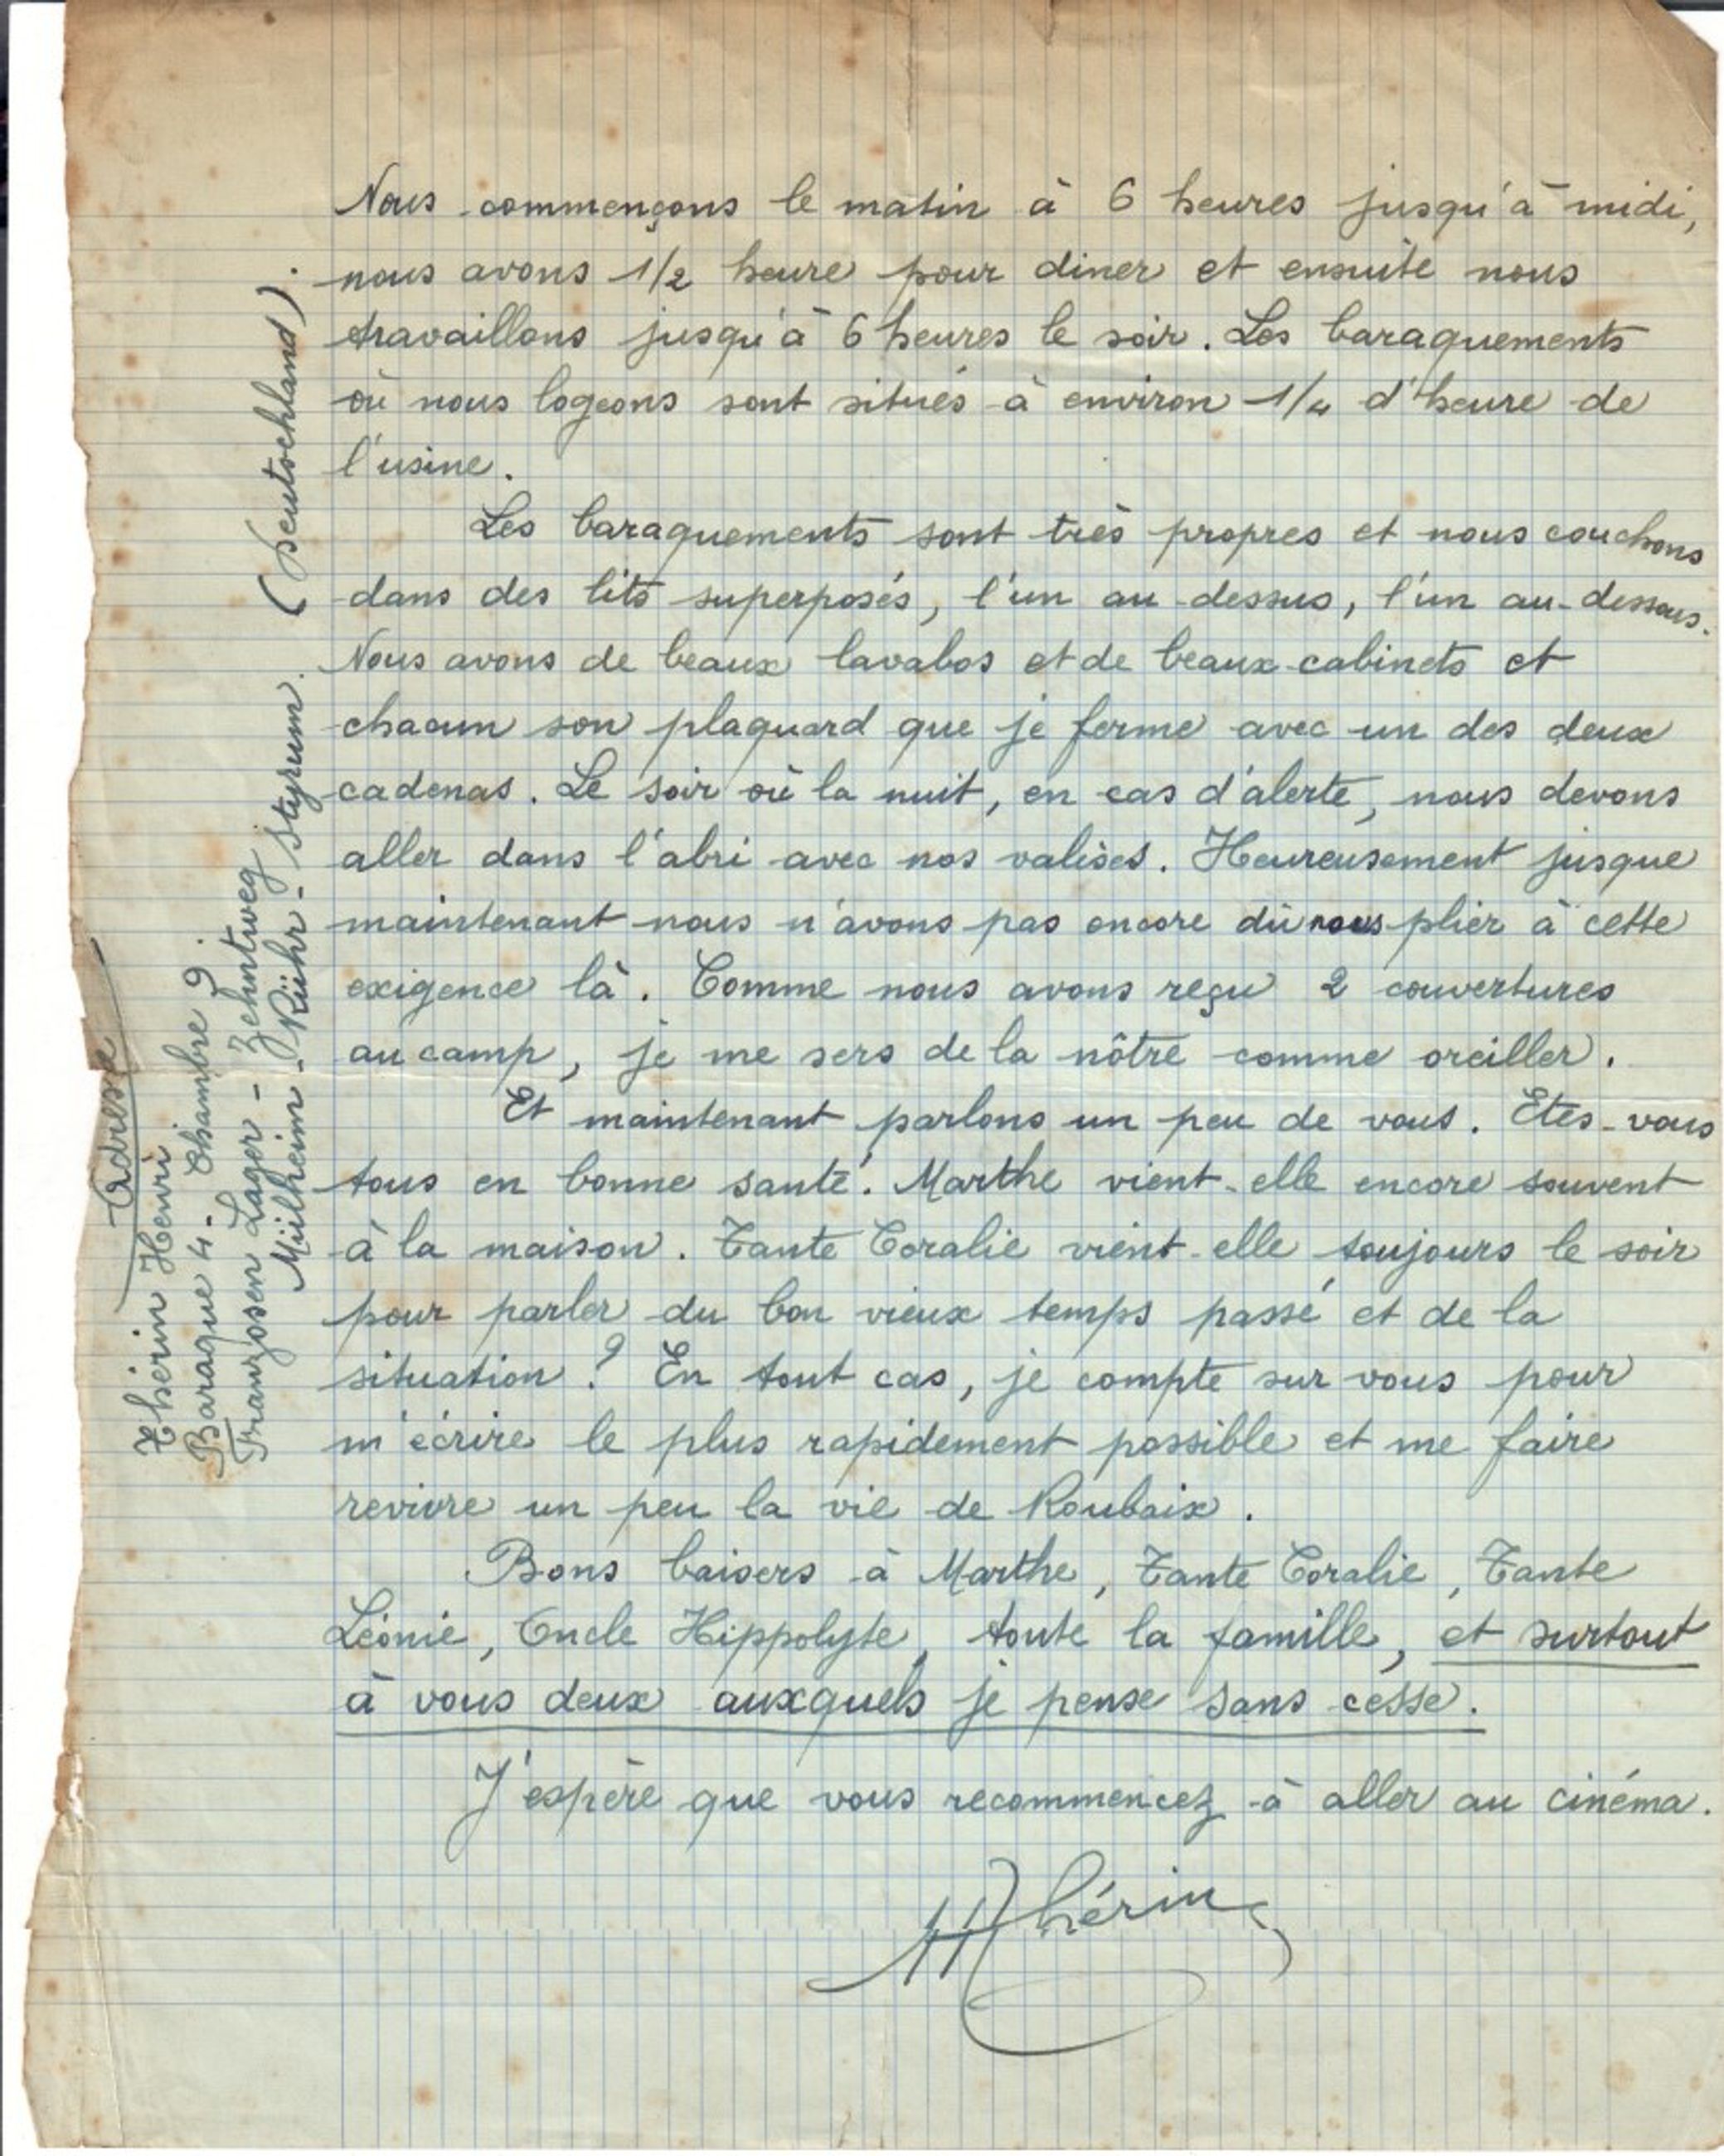 Nous commençons le matin à 6 heures jusqu'à midi,
nous avons 1/2 heure pour diner et ensuite nous
travaillons jusqu'à 6 heures le soir. Les baraquements
où nous logeons sont situés à environ 1/4 d'heure de
l'usine.
Les baraquements sont très propres et nous couchons
dans des lits superposés, l'un au-dessus, l'un au-dessous.
Nous avons de beaux lavabos et de beaux cabinets et
chacun son plaquard que je ferme avec un des deux
cadenas. Le soir où la nuit, en cas d'alerte, nous devons
aller dans l'abri avec nos valises. Heureusement jusque
maintenant nous n'avons pas encore dû nous plier à cette
exigence là. Comme nous avons reçu 2 couvertures
au camp, je me sers de la nôtre comme oreiller.
Et maintenant parlons un peu de vous. Etes-vous
tous en bonne santé. Marthe vient-elle encore souvent
à la maison. Tante Coralie vient-elle toujours le soir
pour parler du bon vieux temps passé et de la
situation ? En tout cas, je compte sur vous pour
m'écrire le plus rapidement possible et me faire
revivre un peu la vie de Roubaix.
Bons baisers à Marthe, Tante Coralie, Tante
Léonie, Oncle Hippolyte, toute la famille, et surtout
à vous deux auxquels je pense sans cesse.
J'espère que vous recommencez à aller au cinéma.
HThérin
Adresse
Thérin Henri
Baraque 4. Chambre 9.
Franzosen Lager - Zehntweg
Mülheim - Rühr - Styrum. (Deutschland).